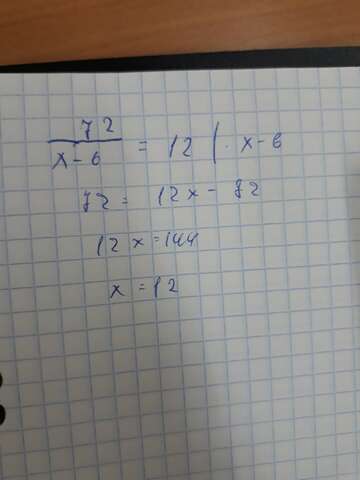 72/(x-6) = 12 | · x-6
72 = 12x - 72
12x = 144
x = 12